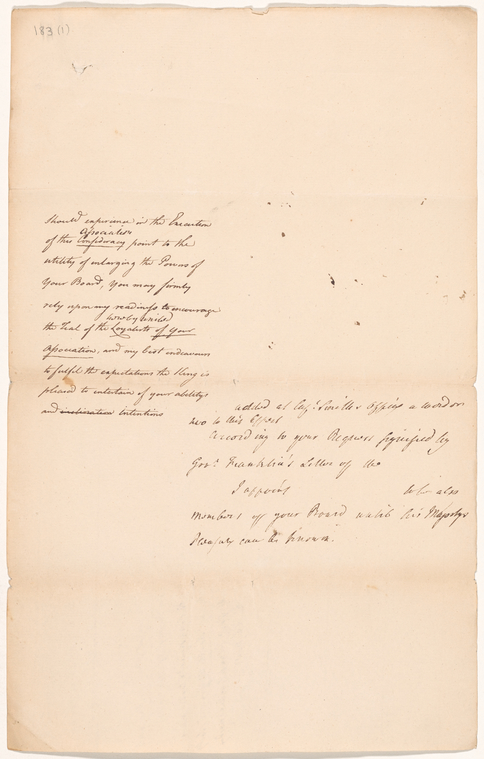 183 (1)
Should experience in the Execution
Association
of this Confederacy point to the
utility of enlarging the Powers of
Your Board, You may firmly
rely upon my readiness to encourage
hereby united
the Zeal of the Loyalists of your
Association, and my best endeavours
to fulfil the expectations the King is
pleased to entertain of your abilitys
and inclination intentions
added at Smith's Office a word or
two to this Effect
According to your Request signified by
Gov.r Franklin's Letter of the
I appoint to be also
members of your Board until his Majestys
Pleasure can be known.